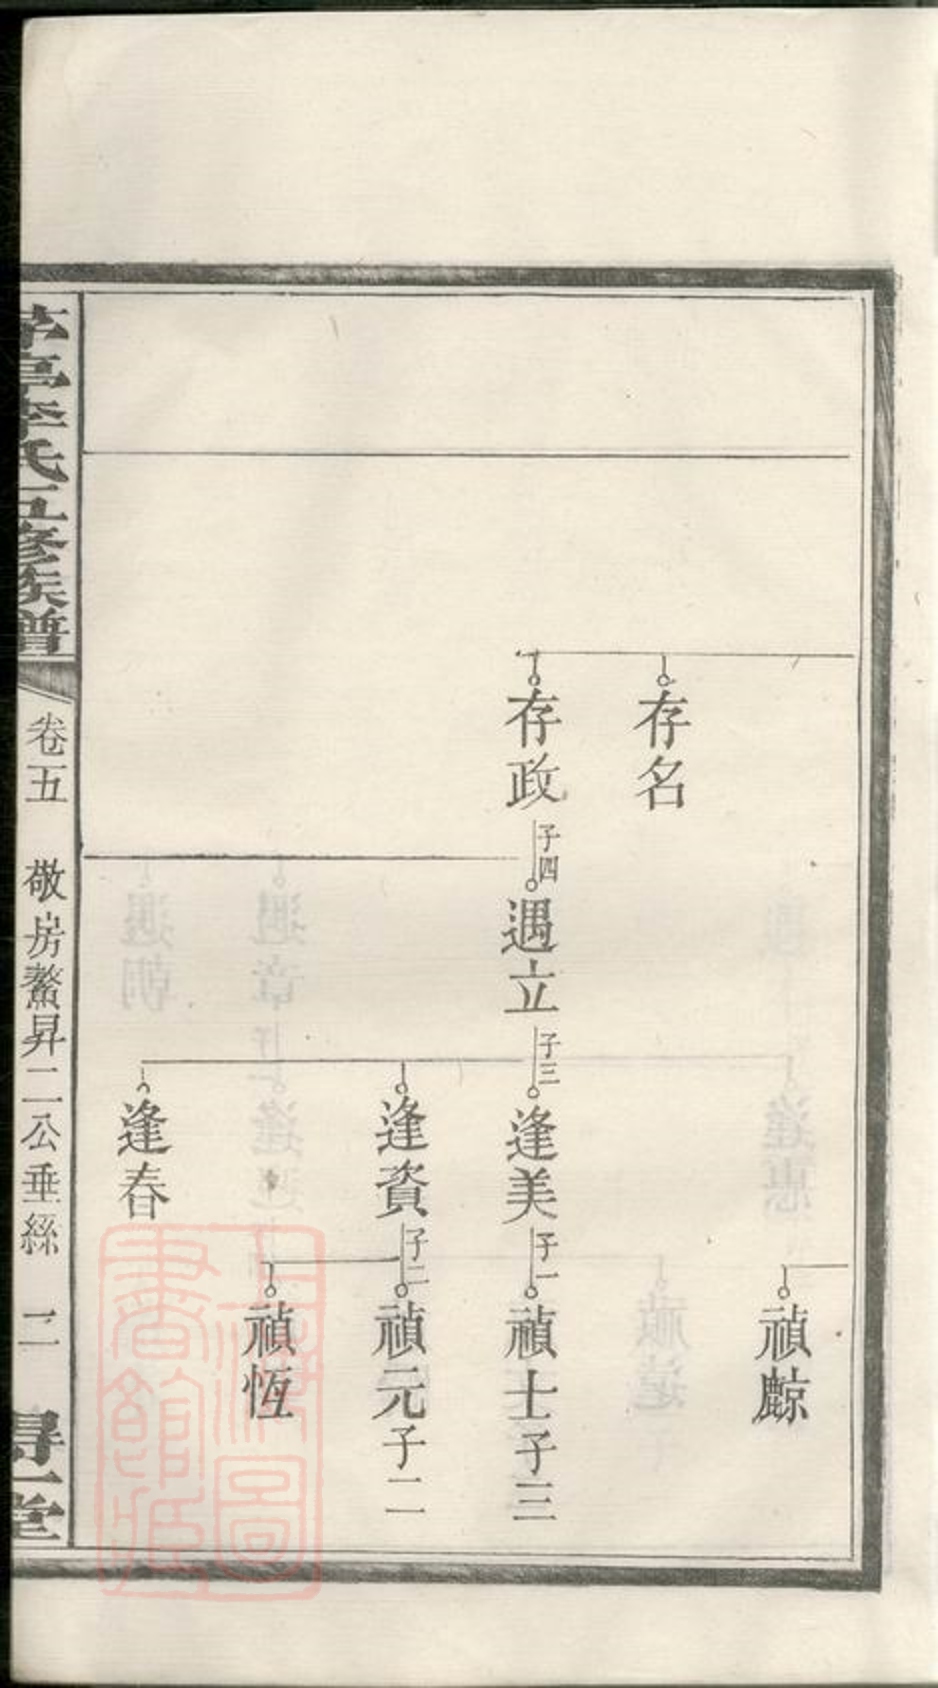 禎䴡
存名
存政 子四 遇立 子三 逢美 子一 禎士 子三
逢資 子二 禎元 子二
禎恆
逢春
茅亭李氏五修族譜 卷五 敬房鰲昇二公垂絲 二 得一堂
上海圖書館藏